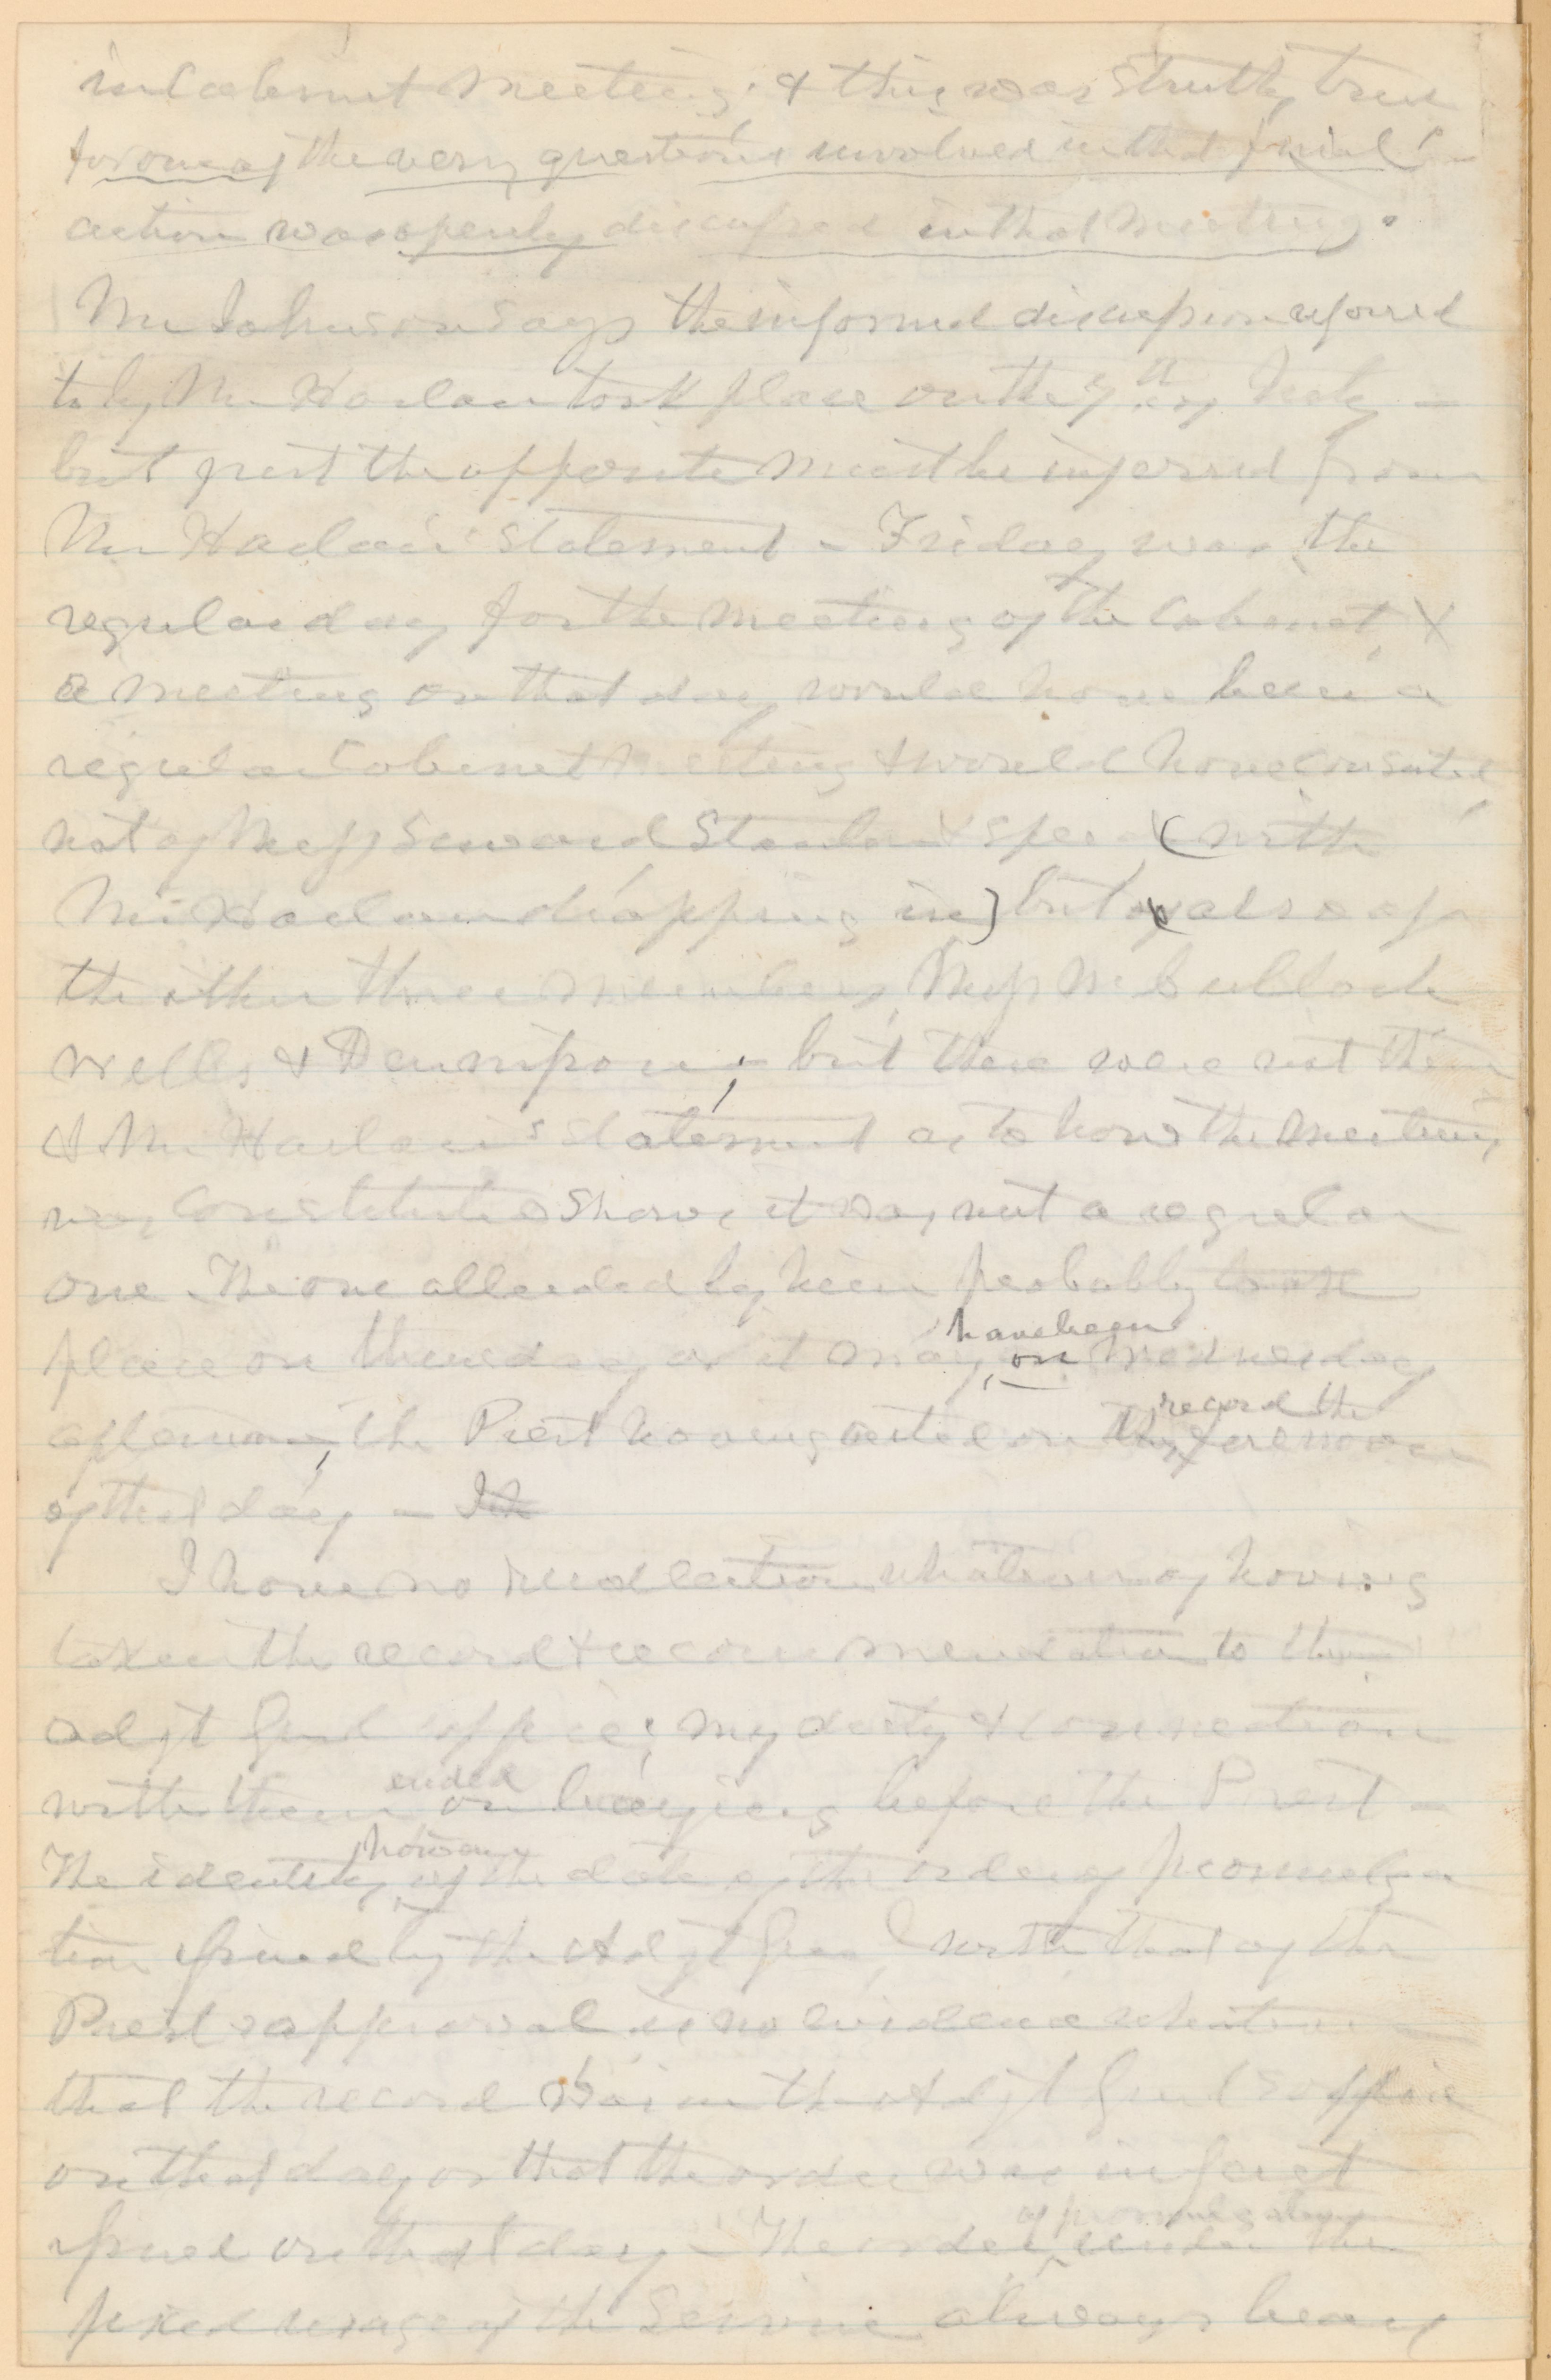 in Cabinet Meeting; & this was strictly true
for one of the very questions involved in that final
action was openly discussed in that meeting.
Mr Johnson says the informal discussion referred
to by Mr Harlan took place on the 7th, of July –
but just the opposite must be inferred from
Mr Harlan's statement – Friday was the
regular day for the meeting of the Cabinet, &
a meeting on that day would have been a
regular Cabinet Meeting & would have consisted
not of Messrs Seward Stanton & Speed (with
Mr Harlan dropping in) but also of
the other three members, Messrs McCulloch
Welles & Dennison; – but these were not there
& Mr Harlan's statement as to how the meeting
was constituted shows it was not a regular
one. The one attended by him probably took
place on Thursday or it may have been on Wednesday
afternoon, the Prest having acted on the record the forenoon
of that day –
I have no recollection whatever of having
taken the record & recommendation to the
Adjt Genl's office; my duty & connection
with them ended on laying before the Prest –
The identity, however, of the date of the order of promulga
tion issued by the Adjt Genl with that of the
Prest's approval is no evidence whatever
that the record was in the Adjt Genl's office
on that day or that the order was in fact
issued on that day – The order of promulgation under the
fixed usage of the Service always bears